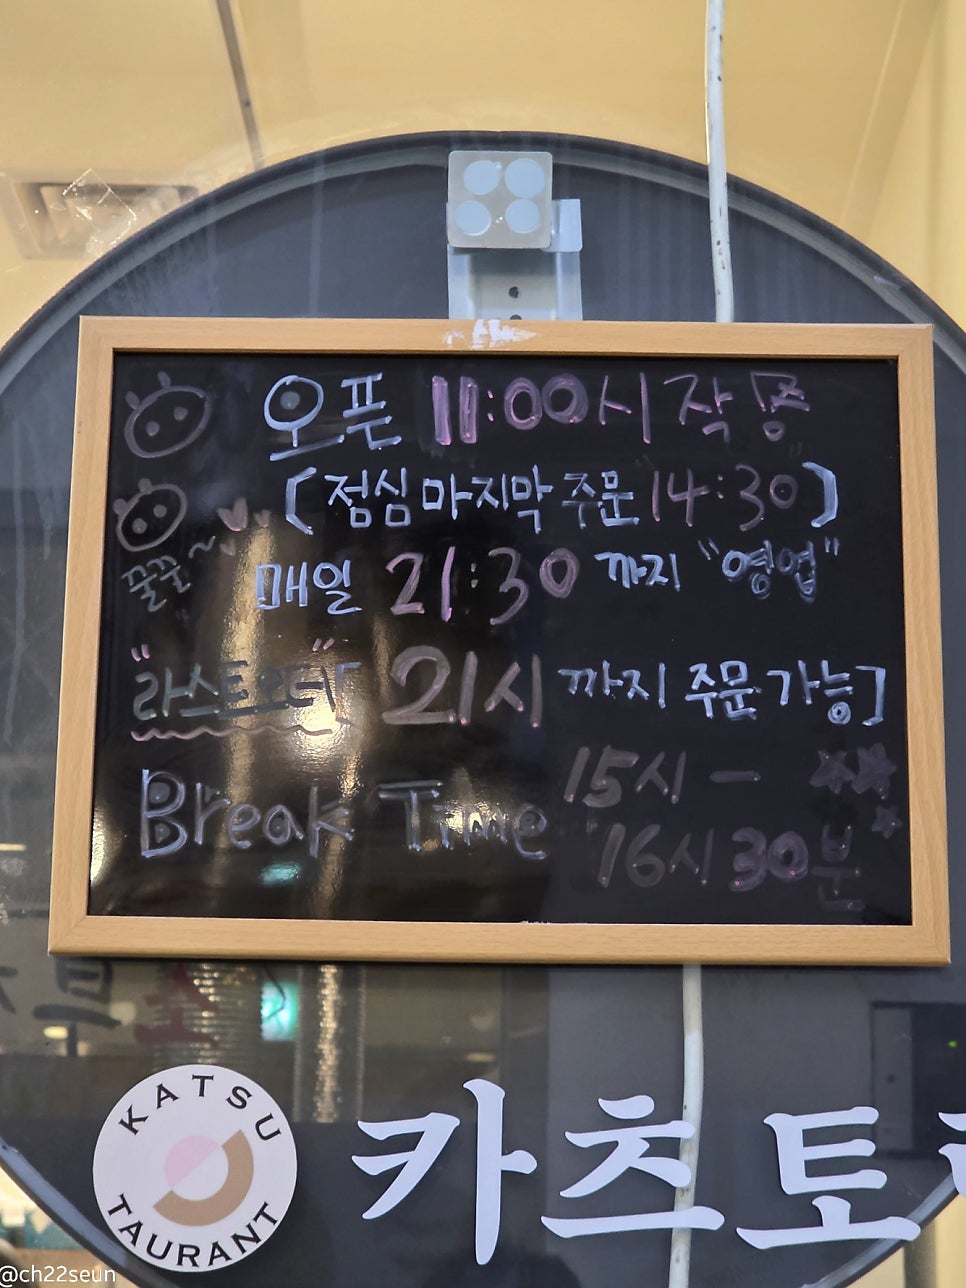 오픈 11:00 시작
[점심 마지막 주문 14:30]
꿀꿀~
매일 21:30 까지 "영업"
"라스트오더" 「21시 까지 주문 가능]
Break Time 15시 —
16시 30분
KATSU
TAURANT
카츠토
@ch22seun